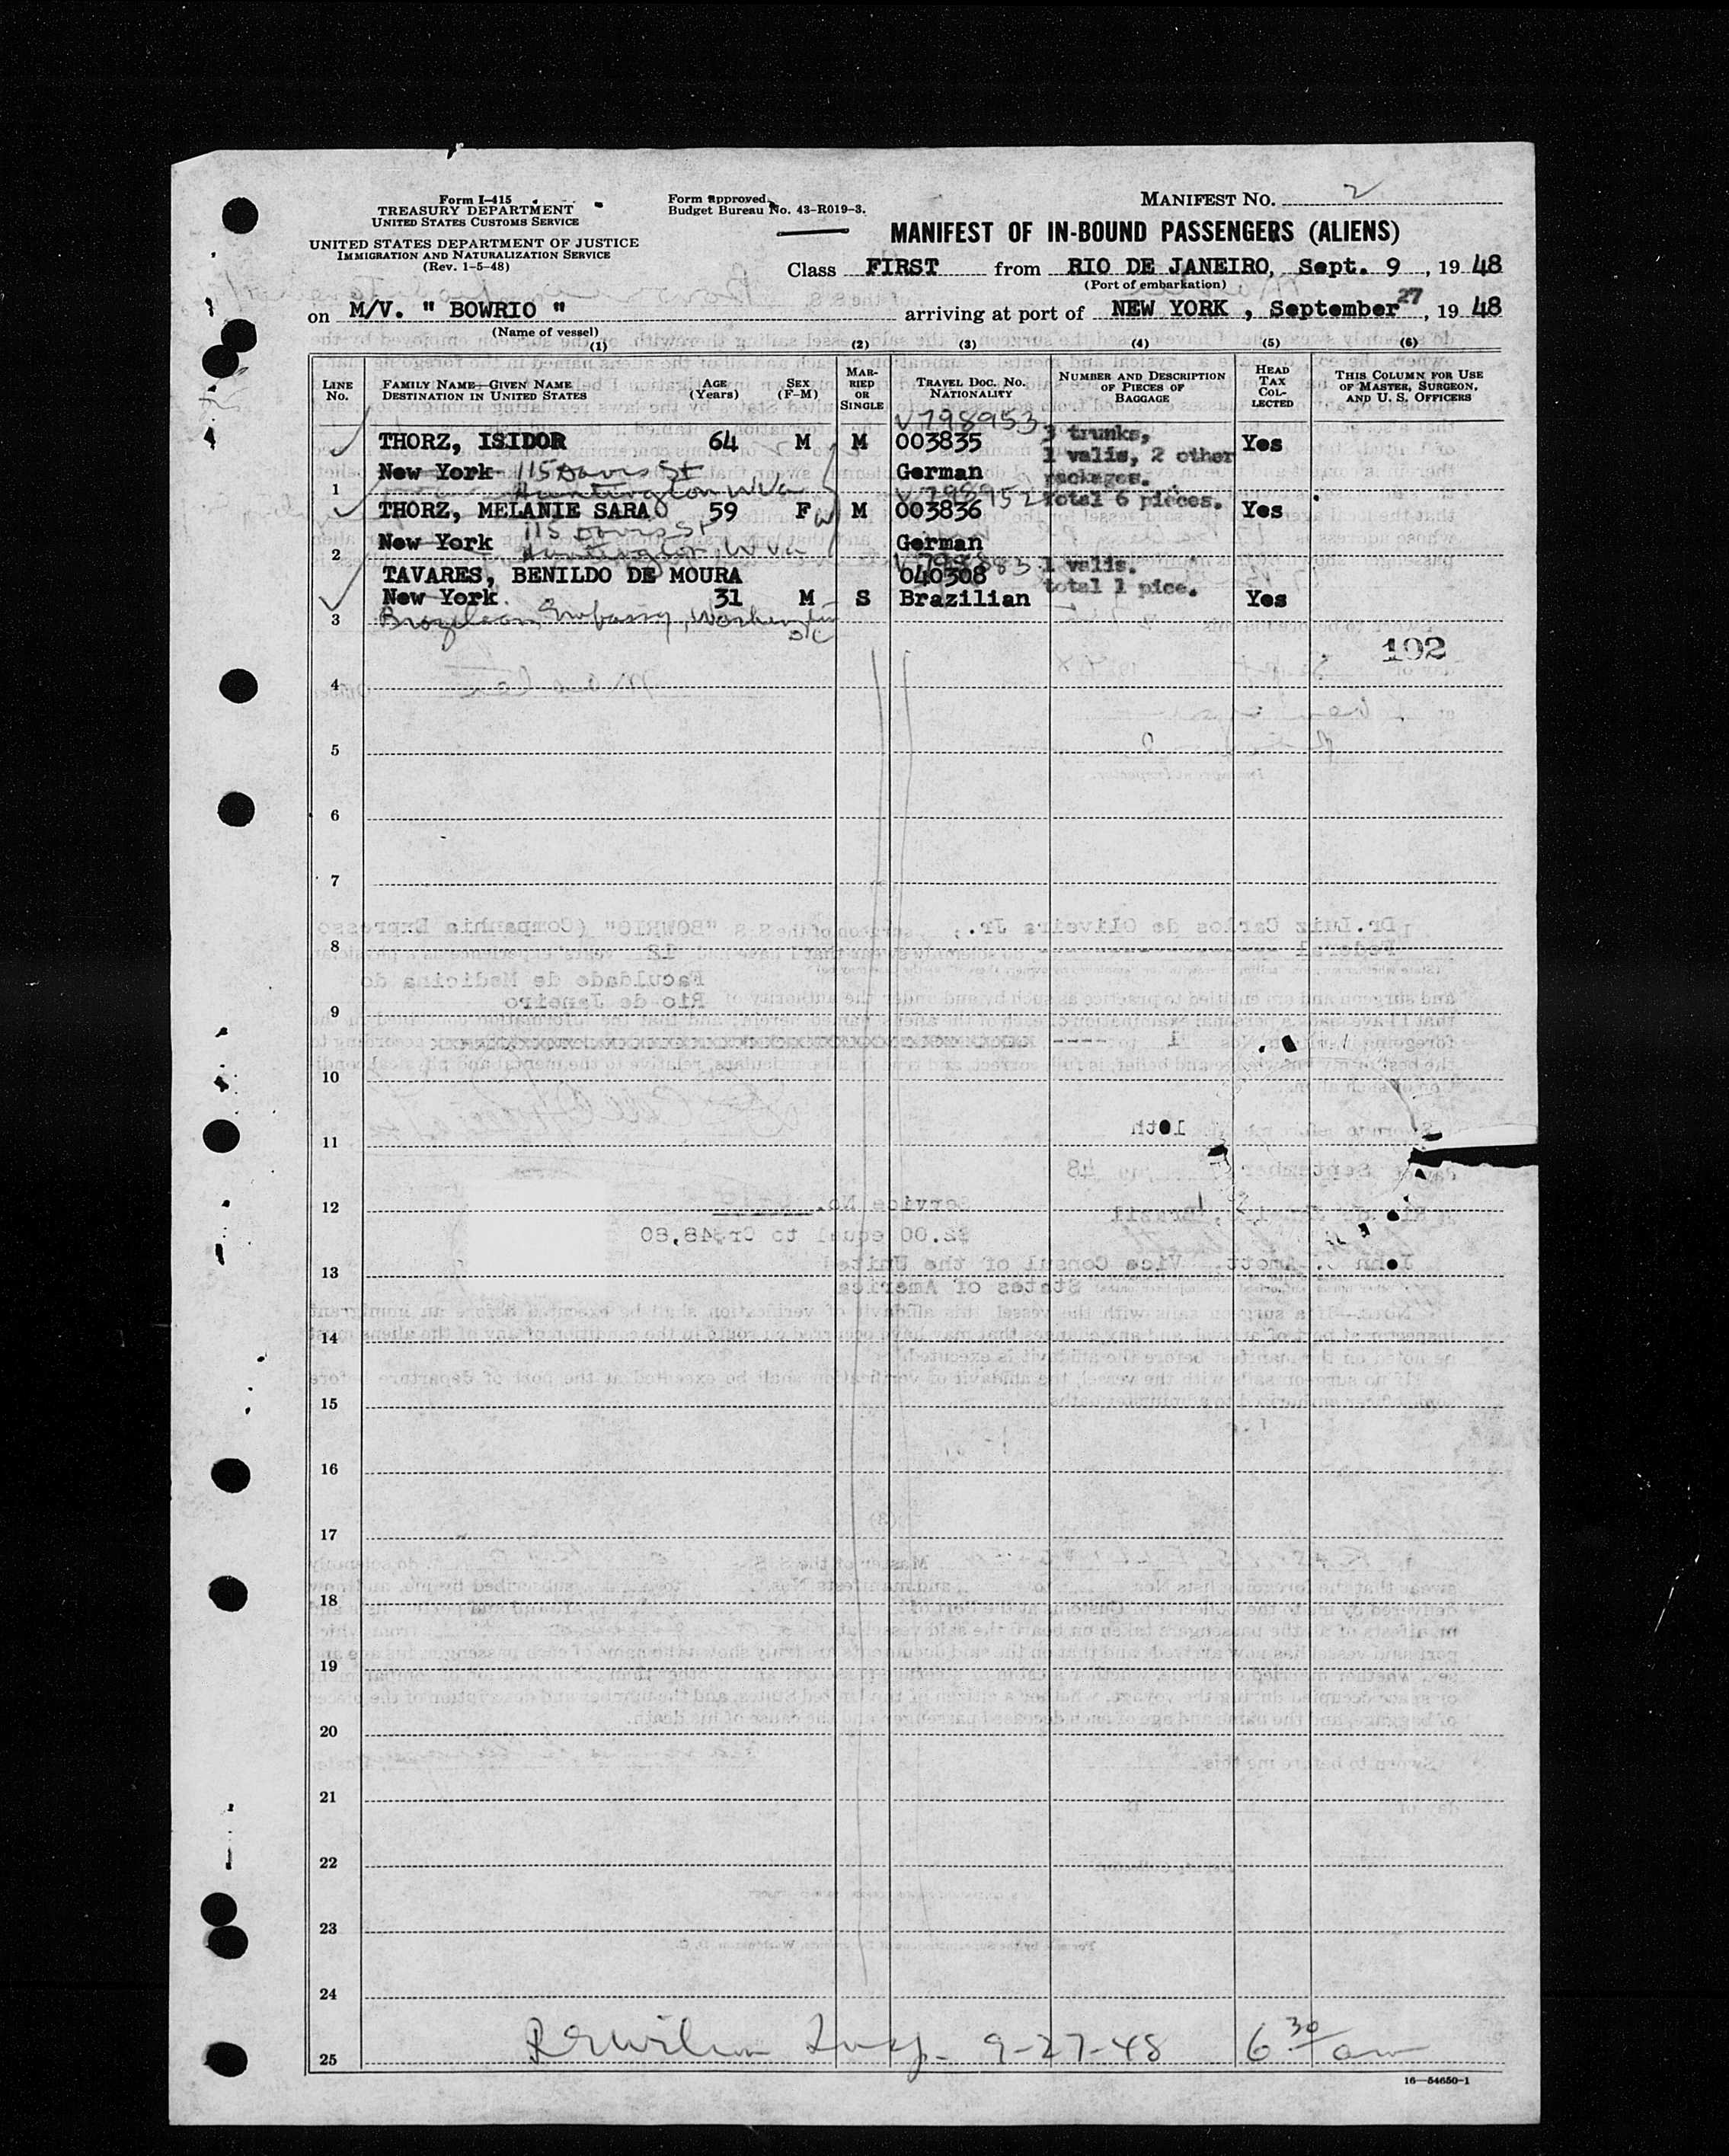 Form I-415
TREASURY DEPARTMENT
UNITED STATES CUSTOMS SERVICE
UNITED STATES DEPARTMENT OF JUSTICE
IMMIGRATION AND NATURALIZATION SERVICE
(Rev. 1-5-48)
Form approved.
Budget Bureau No. 43-R019-3.
MANIFEST No. 2
MANIFEST OF IN-BOUND PASSENGERS (ALIENS)
Class FIRST from RIO DE JANEIRO, Sept. 9, 19 48
(Port of embarkation)
on M/V. " BOWRIO " arriving at port of NEW YORK , September 27, 19 48
(Name of vessel)
(1) (2) (3) (4) (5) (6)
LINE No.
FAMILY NAME—GIVEN NAME
DESTINATION IN UNITED STATES
AGE (Years)
SEX (F-M)
MARRIED OR SINGLE
TRAVEL DOC. No.
NATIONALITY
NUMBER AND DESCRIPTION OF PIECES OF BAGGAGE
HEAD TAX COLLECTED
THIS COLUMN FOR USE OF MASTER, SURGEON, AND U. S. OFFICERS
V798953
THORZ, ISIDOR 64 M M 003835 3 trunks, Yes
1 valis, 2 other
New York 115 Davis St German packages.
1 Huntington W Va V798952 total 6 pieces.
THORZ, MELANIE SARA 59 F W M 003836 Yes
115 Davis St
New York German
2 Huntington, W Va
TAVARES, BENILDO DE MOURA 040308 1 valis.
total 1 pice.
New York. 31 M S Brazilian Yes
3 Brazilian Embassy, Washington
D C
102
4
5
6
7
8
9
10
11
12
13
14
15
16
17
18
19
20
21
22
23
24
25 Insp. 9-27-48 6 30 am
16—54650-1